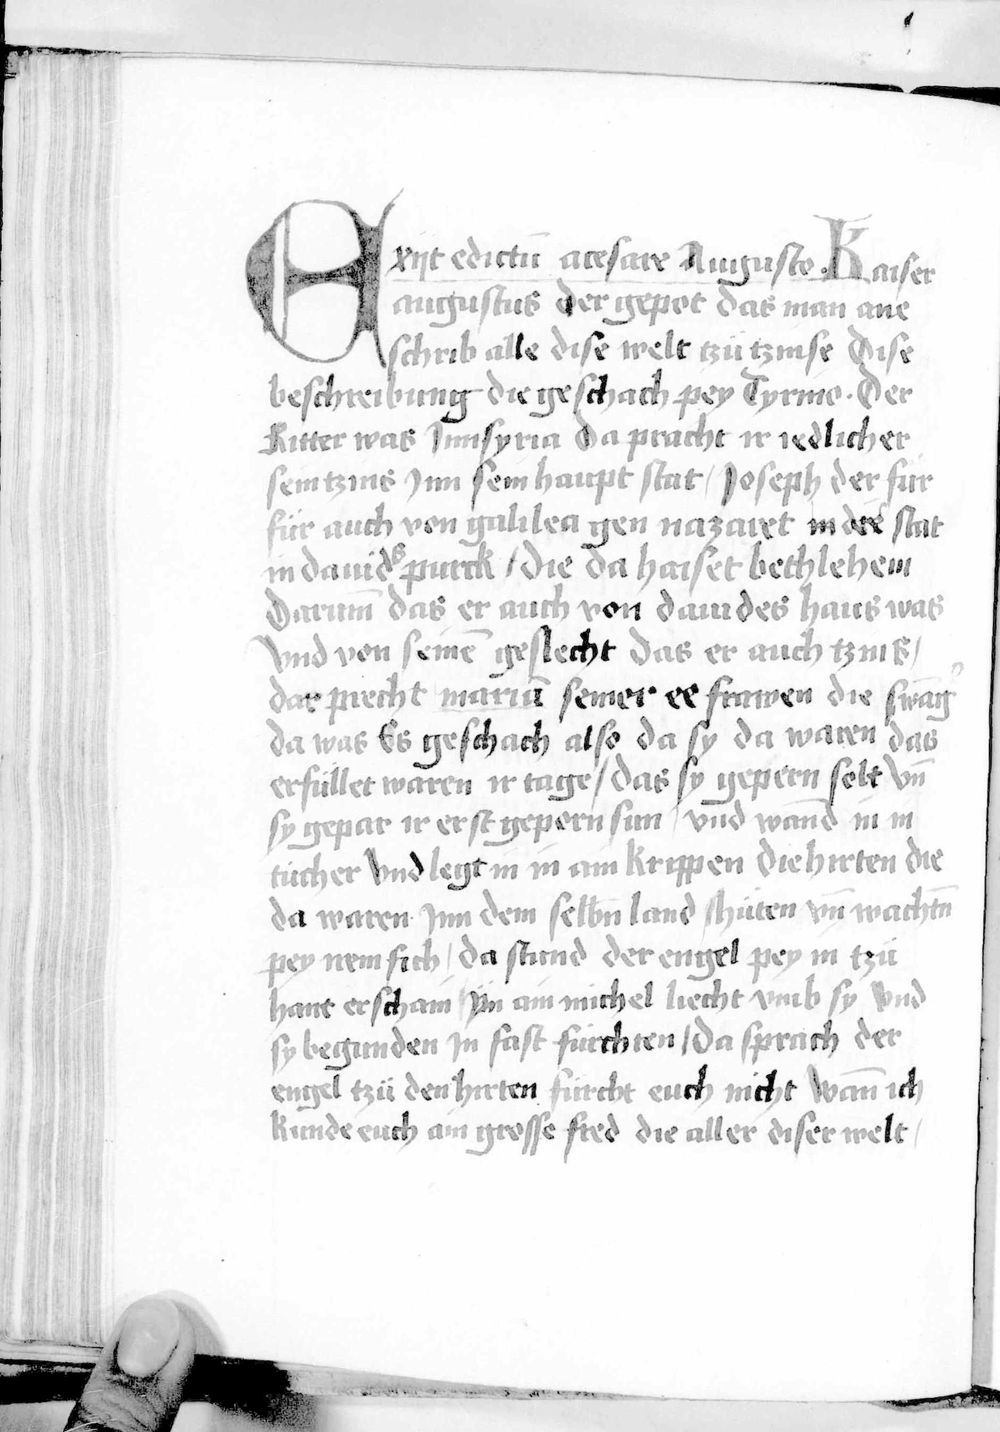 Exijt edictū acesare Augusto. Kaiser
augustus der gepot das man ane
schrib alle dise welt tzü tzinse Dise
beschreibung die geschach pey Tyrino. Der
Ritter was Jnn syria Da pracht ir iedlicher
sein tzins Jnn sein haupt stat / Joseph der für
für auch von galilea gen nazaret in der stat
in dauids purck / die da haiset bethlehem
Darum̄ das er auch von dauides haus was
Vnd von seinē geslecht das er auch tzins /
dar precht mariā seiner ee frawen die swāg
da was Es geschach also da sy da waren das
erfüllet waren ir tage / das sy gepern solt Vn̄
sy gepar ir erst gepern sun / vnd wand in in
tücher Vnd legt in in ain krippen Die hirten die
da waren Jnn dem selbn̄ land / hüten vn̄ wachtn̄
pey nem fich / da stund der engel pey in tzü
hant erschain / Jn ain michel liecht vmb sy Vnd
sy begunden Jn fast fürchten / Da sprach der
engel tzü den hirten fürcht euch nicht Wan̄ ich
künde euch ain grosse fred die aller diser welt /